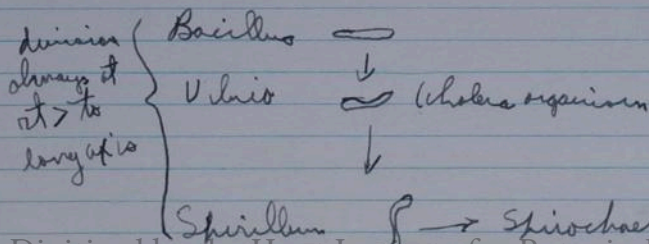 division
always at
rt > to
long axis
Bacillus
Vibrio
(Cholera organism
Spirillum → Spirochae